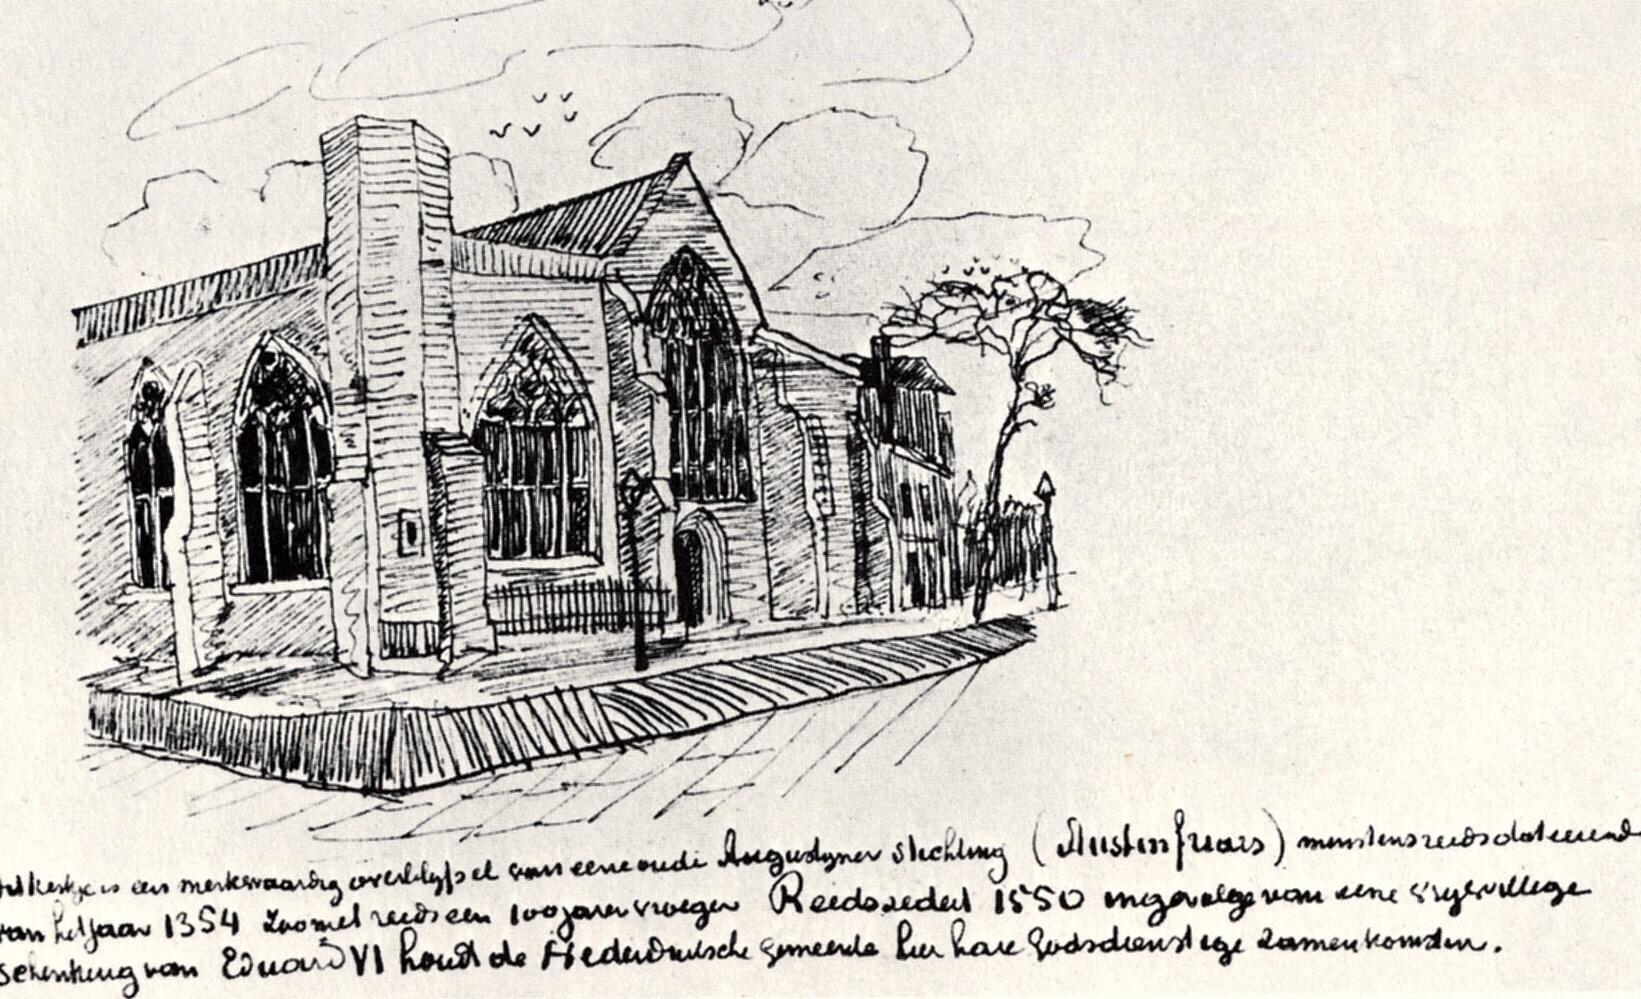 Dit kerkje is een merkwaardig overblijfsel van eene oude Augustijner stichting (Austin friars) minstens reeds dateerende
van het jaar 1354 zoo niet reeds een 100 jaren vroeger Reeds sedert 1550 ingevolge van eene vrijwillige
schenking van Eduard VI houdt de Nederduitsche gemeente hier hare Godsdienstige zamenkomsten.